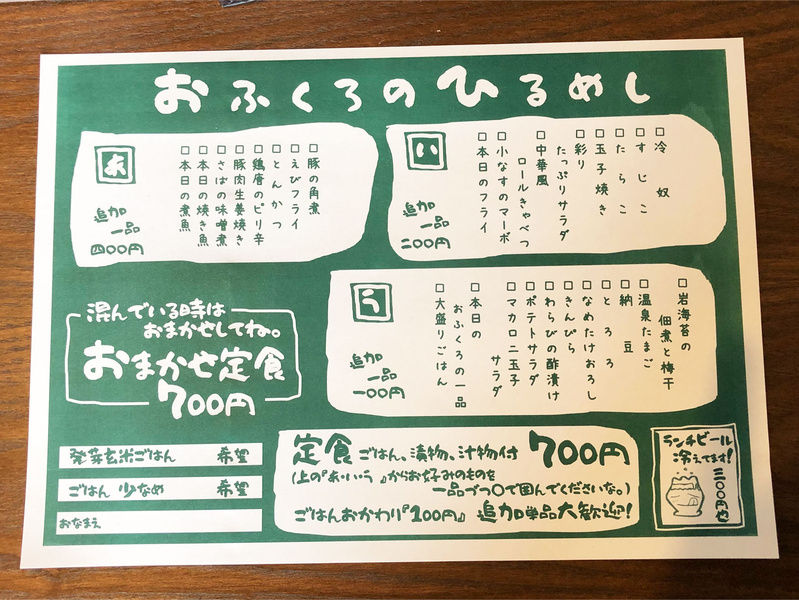 おふくろのひるめし
あ
追加
一品
四〇〇円
□豚の角煮
□えびフライ
□とんかつ
□鶏唐のピリ辛
□豚肉生姜焼き
□さばの味噌煮
□本日の焼き魚
□本日の煮魚
い
追加
一品
二〇〇円
□冷奴
□すじこ
□たらこ
□玉子焼き
□彩り
たっぷりサラダ
□中華風
ロールきゃべつ
□小なすのマーボ
□本日のフライ
う
追加
一品
一〇〇円
□岩海苔の
佃煮と梅干
□温泉たまご
□納豆
□とろろ
□なめたけおろし
□きんぴら
□わらびの酢漬け
□ポテトサラダ
□マカロニ玉子
サラダ
□本日の
おふくろの一品
□大盛りごはん
混んでいる時は
おまかせしてね。
おまかせ定食
700円
発芽玄米ごはん 希望
ごはん 少なめ 希望
おなまえ
定食 ごはん。漬物。汁物付 700円
(上の『あ・い・う』からお好みのものを
一品づつ〇で囲んでくださいな。)
ごはんおかわり『100円』 追加単品大歓迎!
ランチビール
冷えてます!
三〇〇円也